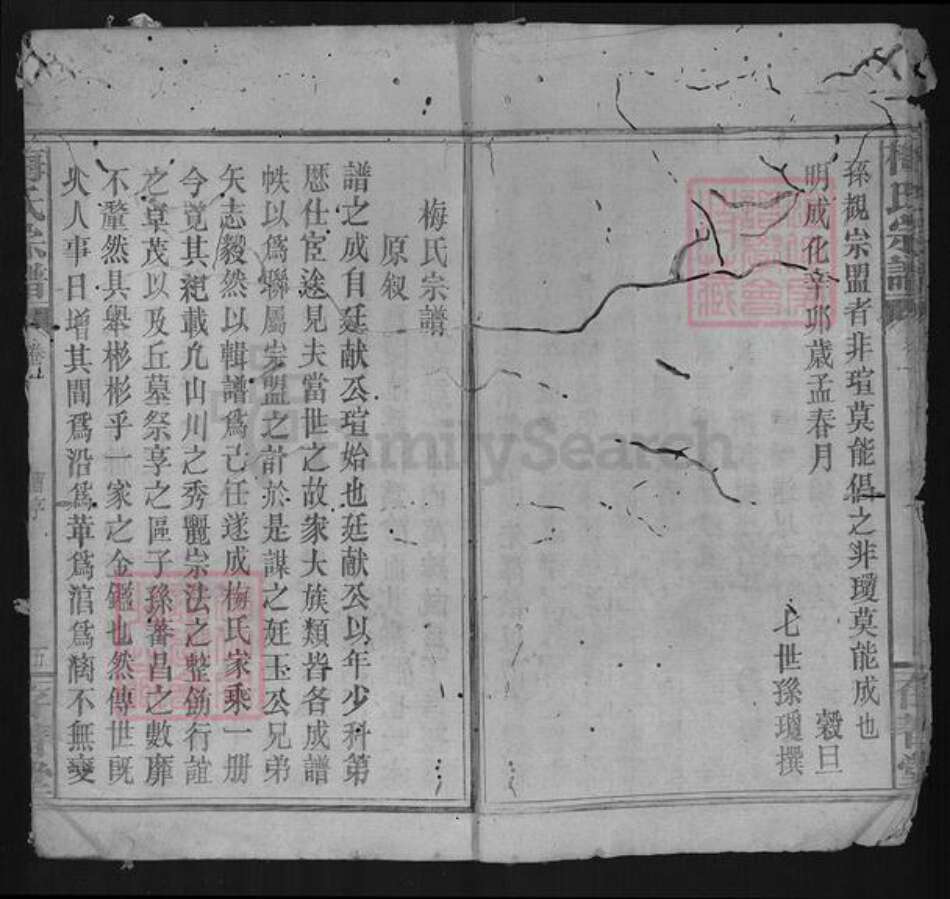 孫觀宗盟者非瑄莫能倡之非瓊莫能成也
明成化辛卯歲孟春月
榖旦
七世孫瓊撰
梅氏宗譜
原叙
譜之成自廷献公瑄始也廷献公以年少科第
歷仕宦途見夫當世之故家大族類皆各成譜
帙以爲聯屬宗盟之計於是謀之廷玉公兄弟
矢志毅然以輯譜爲己任遂成梅氏家乘一册
今覽其祀載凢山川之秀麗宗法之整飭行誼
之卓茂以及丘墓祭享之區子孫蕃昌之數靡
不釐然具舉彬彬乎一家之金鑑也然傳世旣
乆人事日增其間爲沿爲革爲淯爲漓不無變
梅氏宗譜
FamilySearch